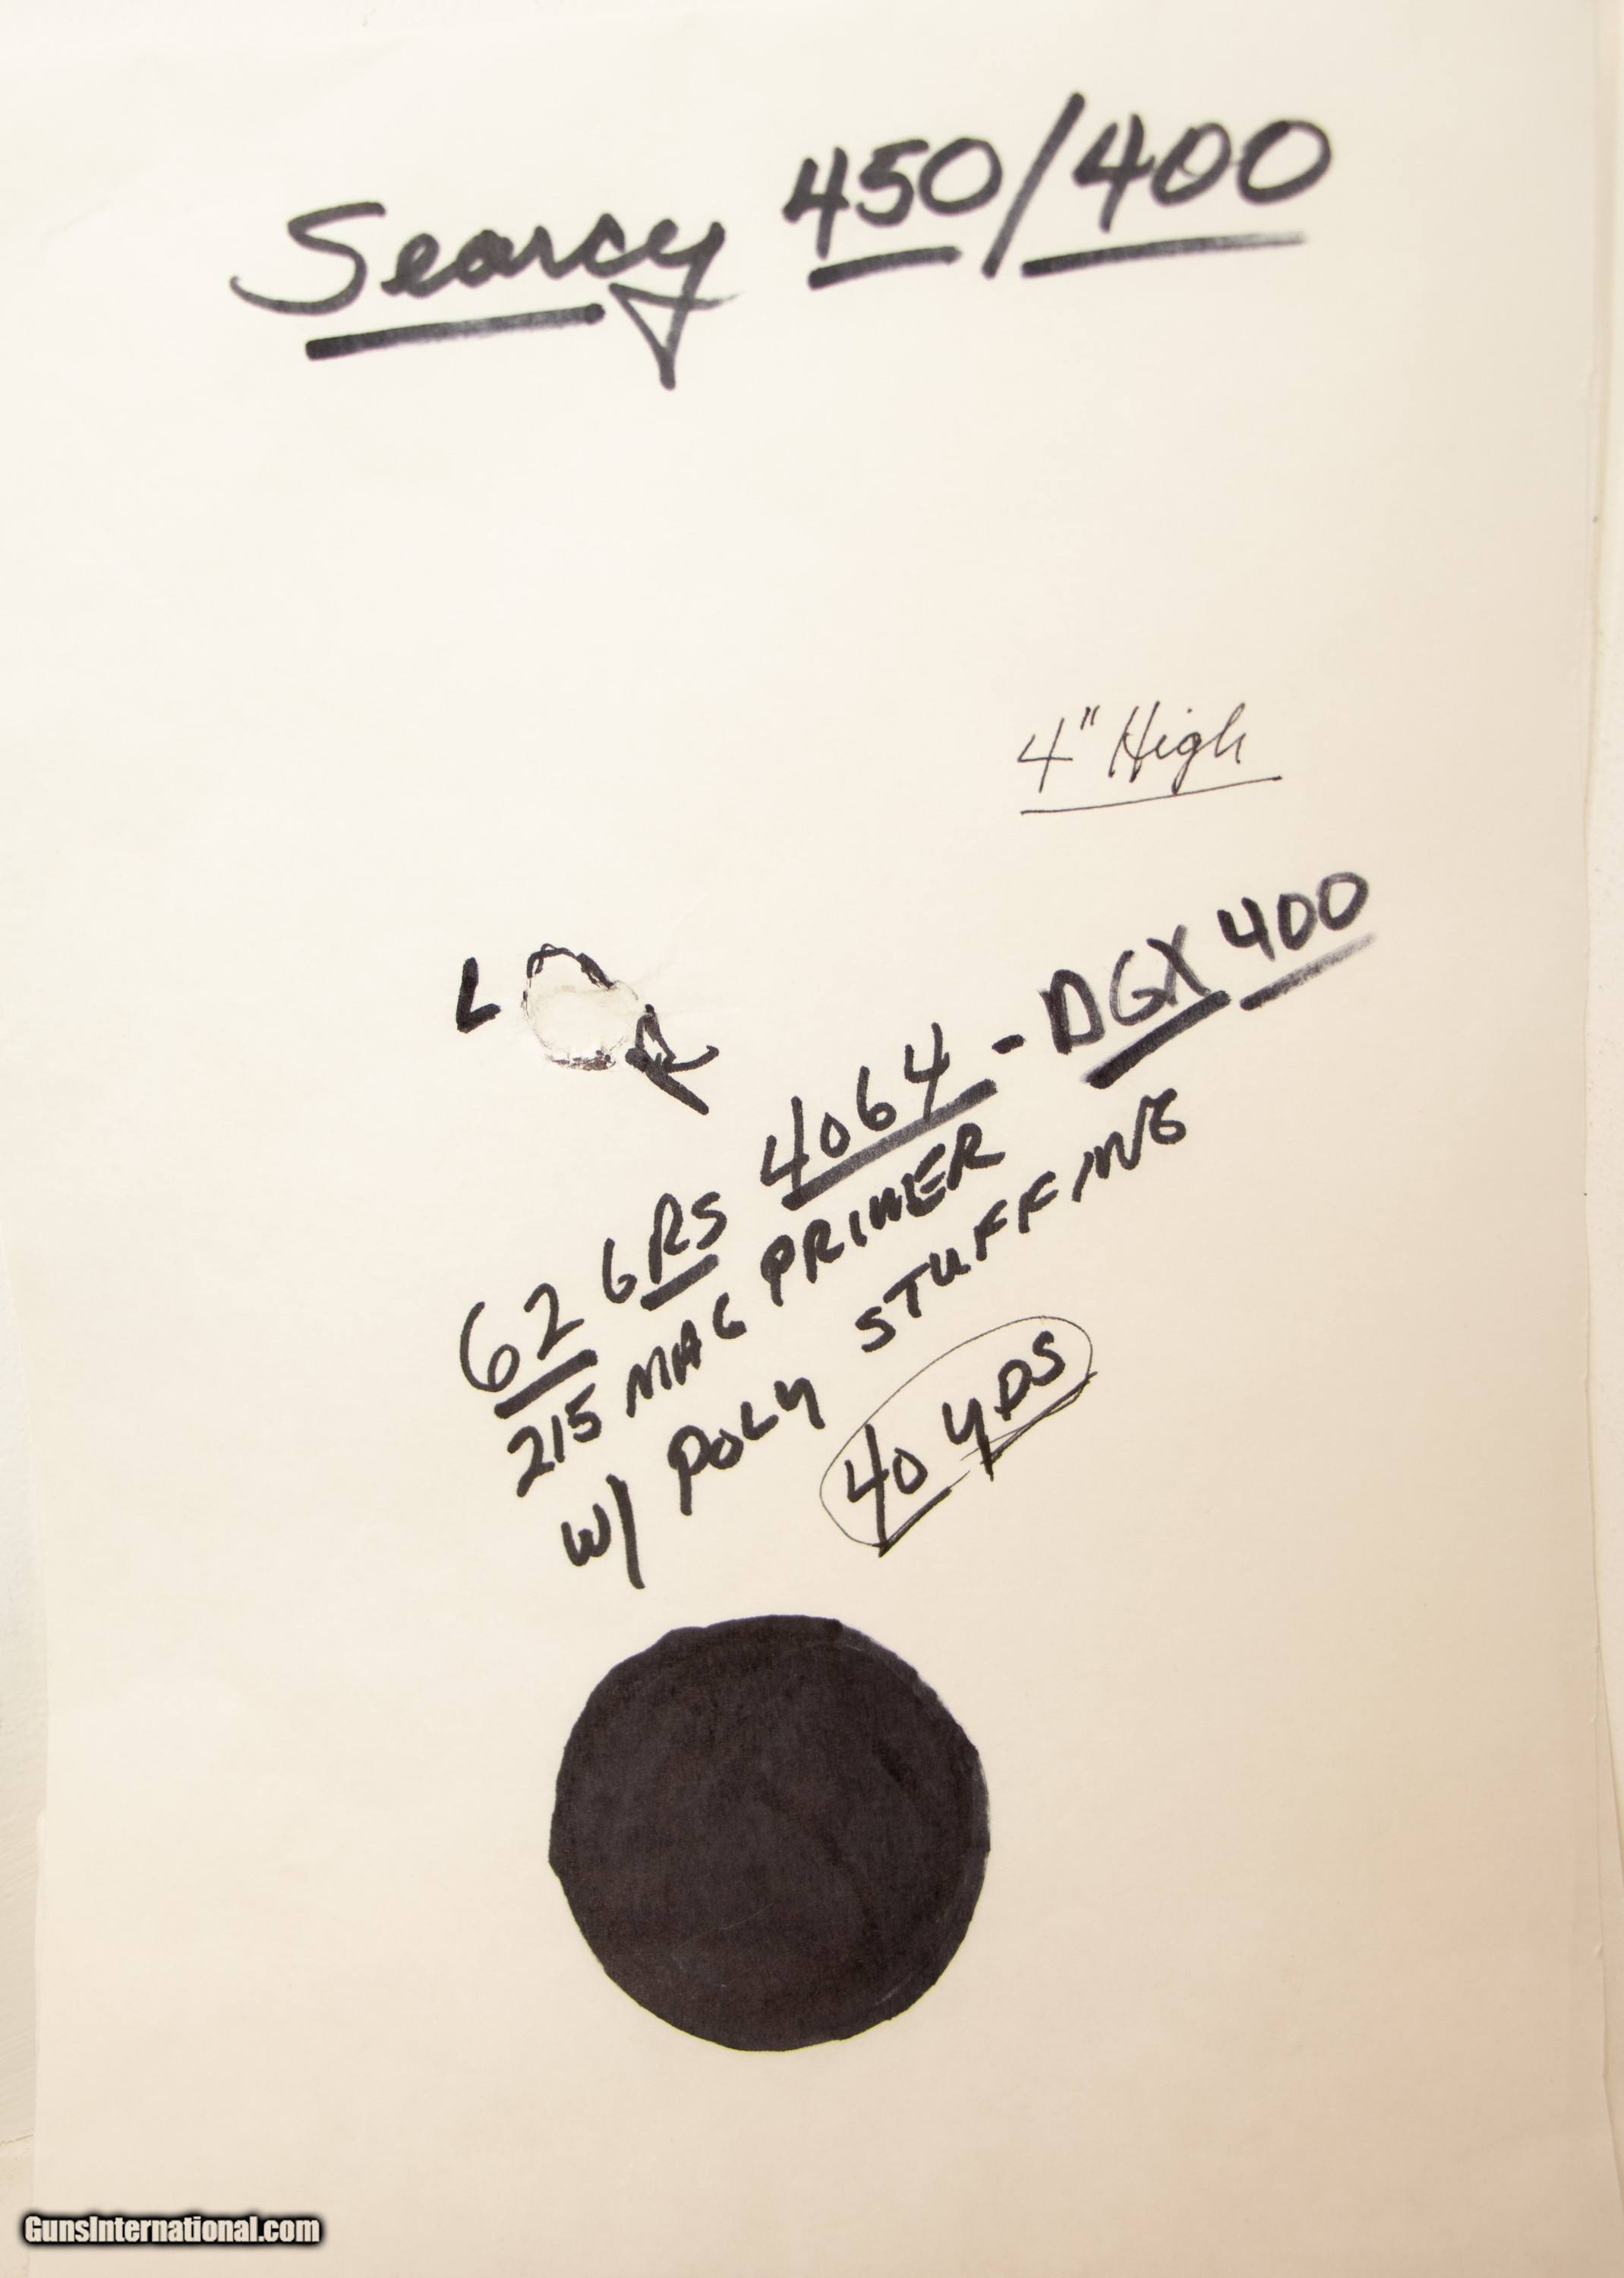 Searcy 450/400
4" High
L
R
62 GRS 4064 - DGX 400
215 MAG PRIMER
W/ POLY STUFFING
40 YDS
GunsInternational.com